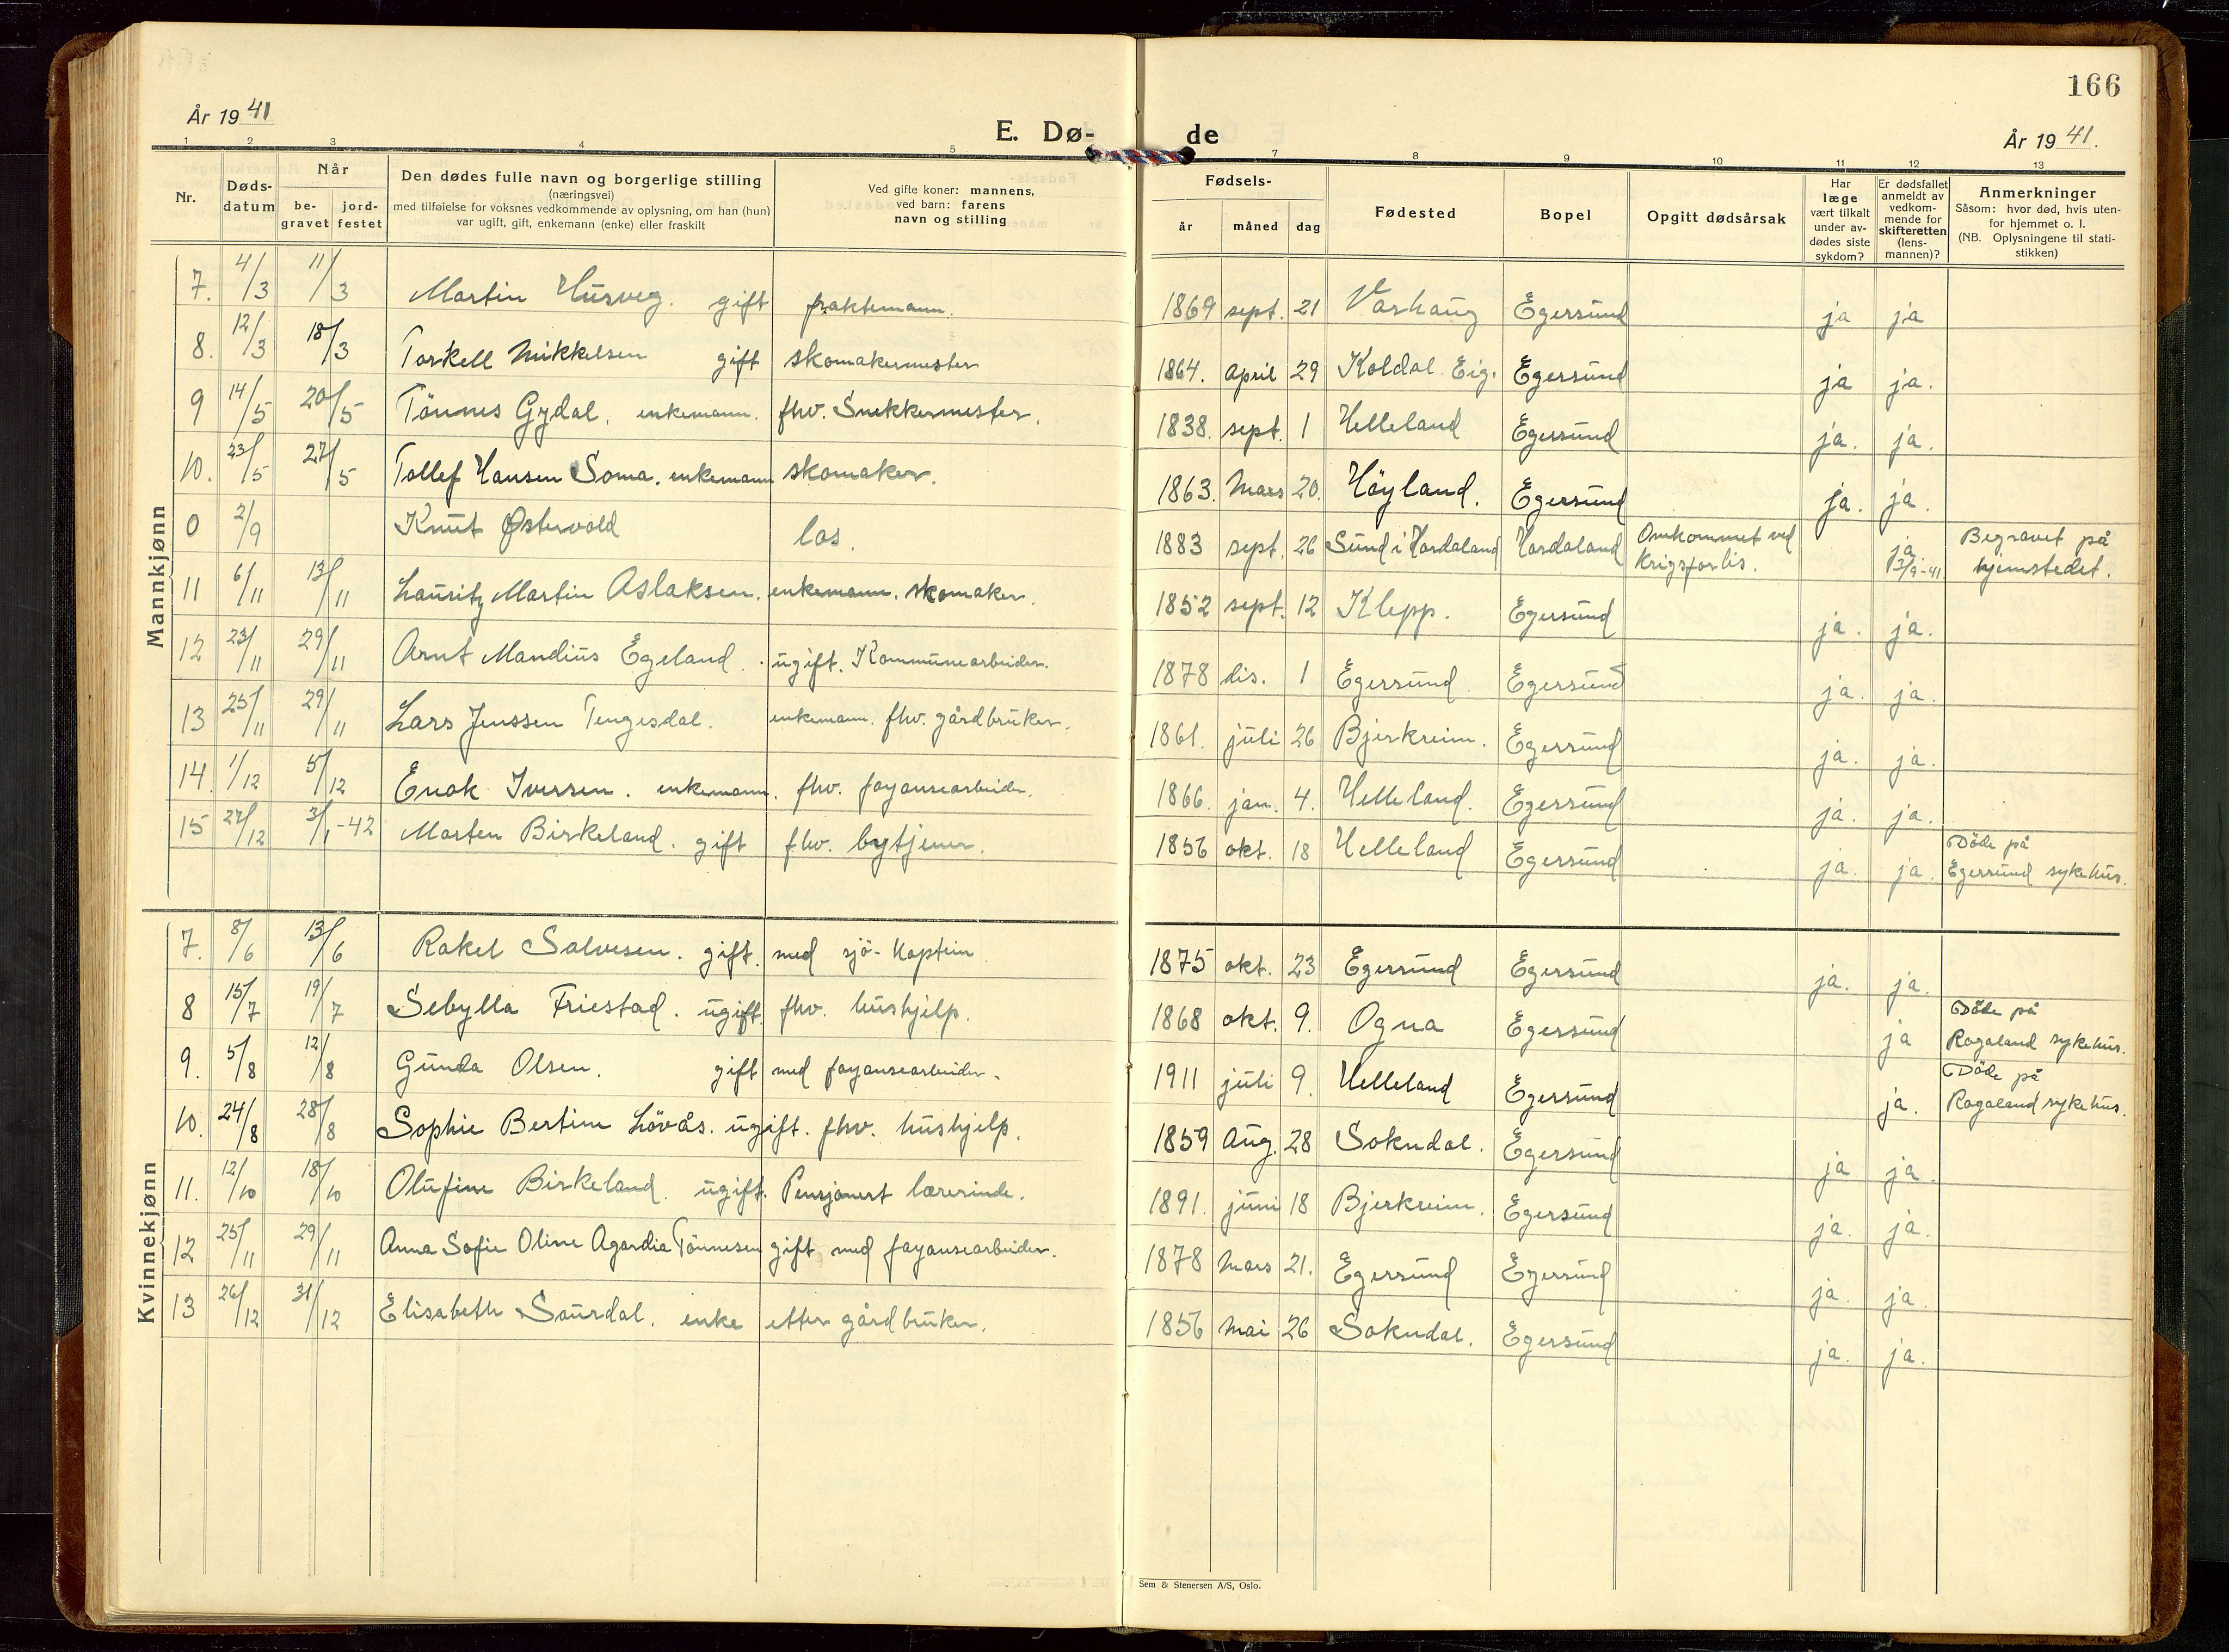 166
År 1941
E. Dø- de
År 1941.
1 2 3 4 5 7 8 9 10 11 12 13
Nr.
Døds-
datum
Når
be-
gravet
jord-
festet
Den dødes fulle navn og borgerlige stilling
(næringsvei)
med tilføielse for voksnes vedkommende av oplysning, om han (hun)
var ugift, gift, enkemann (enke) eller fraskilt
Ved gifte koner: mannens,
ved barn: farens
navn og stilling
Fødsels-
år måned dag
Fødested
Bopel
Opgitt dødsårsak
Har
læge
vært tilkalt
under av-
dødes siste
sykdom?
Er dødsfallet
anmeldt av
vedkom-
mende for
skifteretten
(lens-
mannen)?
Anmerkninger
Såsom: hvor død, hvis uten-
for hjemmet o. l.
(NB. Oplysningene til stati-
stikken)
Mannkjønn
7. 4/3 11/3 Martin Husveg. gift fraktemann. 1869 sept. 21 Varhaug Egersund ja ja
8. 12/3 18/3 Torkell Mikkelsen gift skomakermester 1864. April 29 Koldal Eig. Egersund ja ja.
9 14/5 20/5 Tönnes Gydal. enkemann. fhv. Snekkermester. 1838. sept. 1 Helleland Egersund ja. ja.
10. 23/5 27/5 Tollef Hansen Soma. enkemann skomaker. 1863. Mars 20. Höyland. Egersund ja. ja.
0 2/9 Knut Østervold los. 1883 sept. 26 Sund i Hordaland Hordaland Omkommet ved krigsforlis. ja 13/9-41 Begravet på hjemstedet.
11 6/11 13/11 Lauritz Martin Aslaksen. enkemann. skomaker. 1852 sept. 12 Klepp. Egersund ja. ja.
12 23/11 29/11 Arnt Mandius Egeland. ugift. Kommunearbeider. 1878 des. 1 Egersund Egersund ja. ja.
13 25/11 29/11 Lars Jenssen Tengesdal. enkemann. fhv. gårdbruker. 1861. juli 26 Bjerkreim. Egersund ja. ja.
14. 1/12 5/12 Enok Iversen. enkemann. fhv. fayansearbeider. 1866. jan. 4. Helleland. Egersund ja. ja.
15 27/12 3/1-42 Morten Birkeland. gift fhv. bytjener. 1856 okt. 18 Helleland Egersund ja. ja. Döde på Egersund sykehus.
Kvinnekjønn
7. 8/6 13/6 Rakel Salvesen. gift. med sjö-Kaptein 1875 okt. 23 Egersund Egersund ja. ja.
8 15/7 19/7 Sebylla Friestad. ugift. fhv. hushjelp. 1868 okt. 9. Ogna Egersund ja Döde på Rogaland sykehus.
9. 5/8 12/8 Gunda Olsen. gift med fayansearbeider. 1911 juli 9. Helleland Egersund ja. Döde på Rogaland sykehus.
10. 24/8 28/8 Sophie Bertine Lövås. ugift. fhv. hushjelp. 1859 Aug. 28 Sokndal. Egersund ja ja.
11. 12/10 18/10 Olufine Birkeland. ugift. Pensjonert lærerinde. 1891. juni 18 Bjerkreim. Egersund ja. ja.
12 25/11 29/11 Anna Sofie Oline Agardia Tönnesen gift med fayansearbeider. 1878 Mars 21. Egersund Egersund ja. ja.
13 26/12 31/12 Elisabeth Saurdal. enke etter gårdbruker. 1856 Mai 26 Sokndal. Egersund ja. ja.
Sem & Stenersen A/S, Oslo.